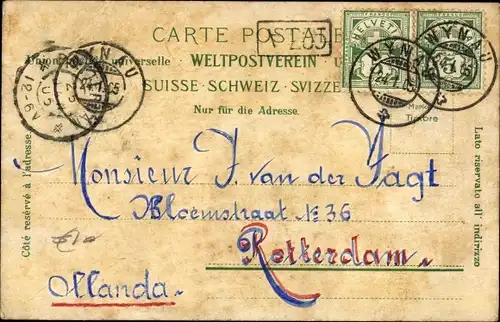 CARTE POSTALE
Union postale universelle · WELTPOSTVEREIN ·
SUISSE · SCHWEIZ · SVIZZE
Nur für die Adresse.
HELVETIA
FRANCO
WYNAU
24.I.05
WYNAU
24.I.05
WYNAU
24.I.05
12-9
05
Marke
Timbre
Côté reservé à l'adresse.
Lato riservato all' indirizzo
Monsieur J. van der Jagt
Bloemstraat № 36
Rotterdam.
Ollanda.